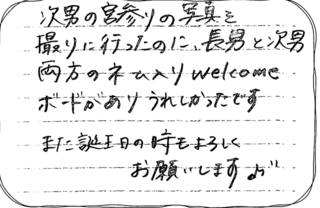 次男の宮参りの写真を
撮りに行ったのに、長男と次男
両方のネーム入りwelcome
ボードがありうれしかったです
また誕生日の時もよろしく
お願いします♪